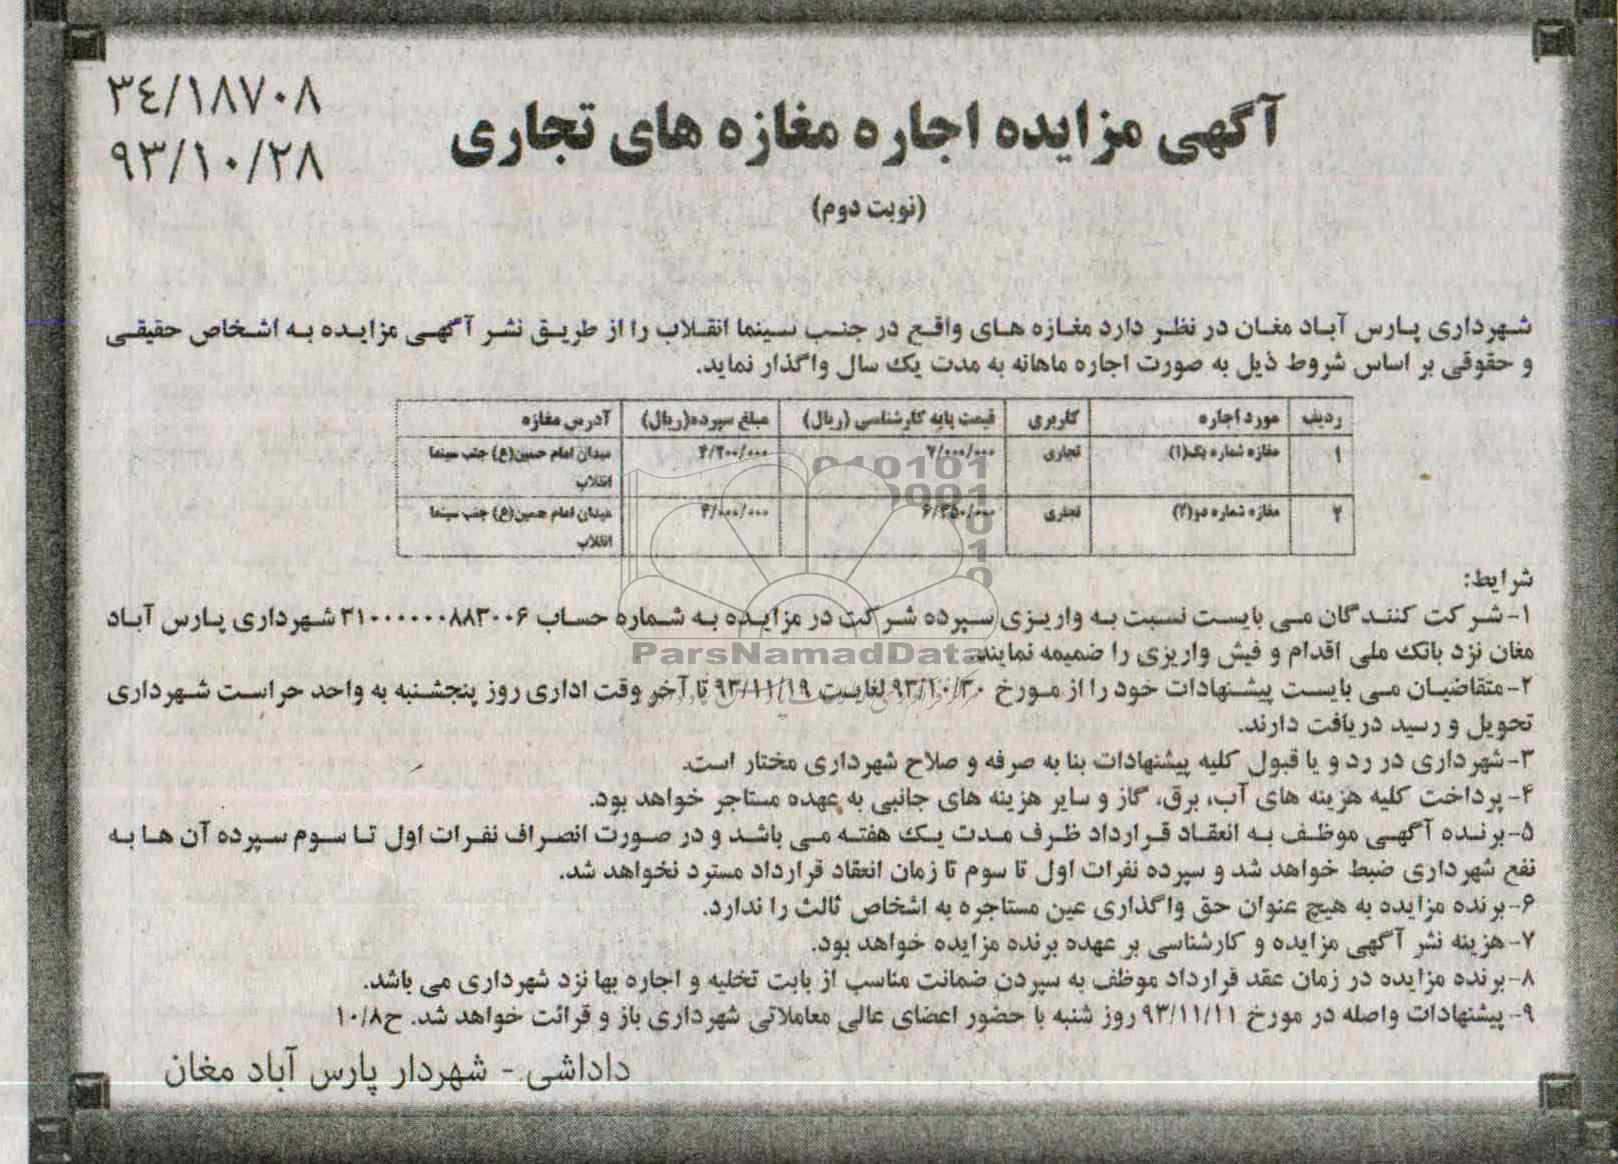 ۳٤/۱۸۷۰۸
۹۳/۱۰/۲۸
آگهی مزایده اجاره مغازه های تجاری
(نوبت دوم)
شهرداری پارس آباد مغان در نظر دارد مغازه های واقع در جنب سینما انقلاب را از طریق نشر آگهی مزایده به اشخاص حقیقی
و حقوقی بر اساس شروط ذیل به صورت اجاره ماهانه به مدت یک سال واگذار نماید.
ردیف مورد اجاره کاربری قیمت پایه کارشناسی (ریال) مبلغ سپرده(ریال) آدرس مغازه
۱ مغازه شماره یک(۱) تجاری ۷/۰۰۰/۰۰۰ ۴/۲۰۰/۰۰۰ میدان امام حسین(ع) جنب سینما
انقلاب
۲ مغازه شماره دو(۲) تجاری ۶/۳۵۰/۰۰۰ ۴/۰۰۰/۰۰۰ میدان امام حسین(ع) جنب سینما
انقلاب
شرایط:
۱-شرکت کنندگان می بایست نسبت به واریزی سپرده شرکت در مزایده به شماره حساب ۳۱۰۰۰۰۰۰۸۸۳۰۰۶ شهرداری پارس آباد
مغان نزد بانک ملی اقدام و فیش واریزی را ضمیمه نمایند.
ParsNamadData
۲-متقاضیان می بایست پیشنهادات خود را از مورخ ۹۳/۱۰/۳۰ لغایت ۹۳/۱۱/۱۹ تا آخر وقت اداری روز پنجشنبه به واحد حراست شهرداری
تحویل و رسید دریافت دارند.
۳-شهرداری در رد و یا قبول کلیه پیشنهادات بنا به صرفه و صلاح شهرداری مختار است.
۴- پرداخت کلیه هزینه های آب، برق، گاز و سایر هزینه های جانبی به عهده مستاجر خواهد بود.
۵-برنده آگهی موظف به انعقاد قرارداد ظرف مدت یک هفته می باشد و در صورت انصراف نفرات اول تا سوم سپرده آن ها به
نفع شهرداری ضبط خواهد شد و سپرده نفرات اول تا سوم تا زمان انعقاد قرارداد مسترد نخواهد شد.
۶-برنده مزایده به هیچ عنوان حق واگذاری عین مستاجره به اشخاص ثالث را ندارد.
۷-هزینه نشر آگهی مزایده و کارشناسی بر عهده برنده مزایده خواهد بود.
۸-برنده مزایده در زمان عقد قرارداد موظف به سپردن ضمانت مناسب از بابت تخلیه و اجاره بها نزد شهرداری می باشد.
۹- پیشنهادات واصله در مورخ ۹۳/۱۱/۱۱ روز شنبه با حضور اعضای عالی معاملاتی شهرداری باز و قرائت خواهد شد. ح۱۰/۸
داداشی - شهردار پارس آباد مغان